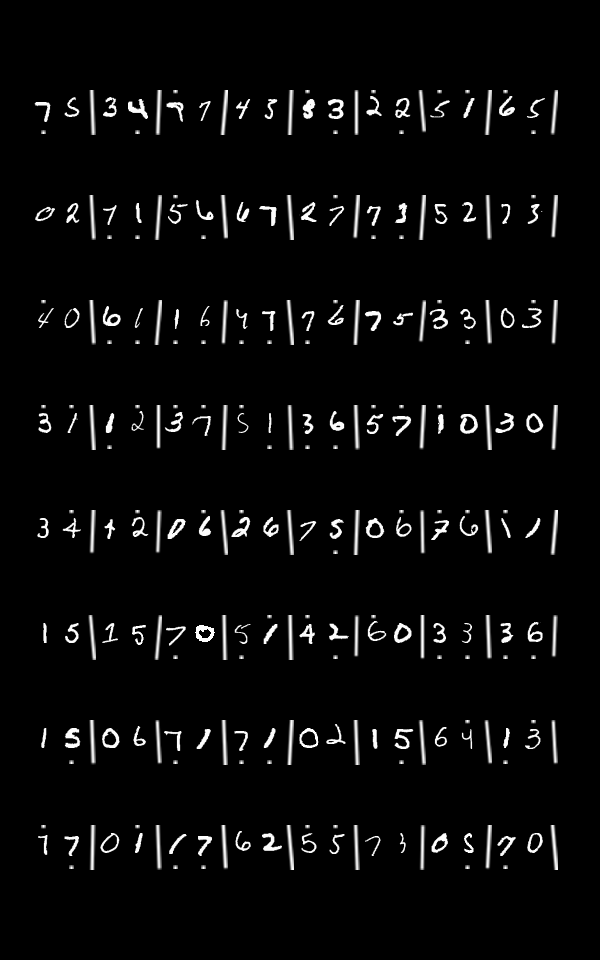 7 5 | 3 4 | 7 7 | 4 3 | 3 3 | 2 2 | 5 1 | 6 5 |
0 2 | 7 1 | 5 6 | 6 7 | 2 7 | 7 3 | 5 2 | 7 3 |
4 0 | 6 1 | 1 6 | 4 7 | 7 6 | 7 5 | 3 3 | 0 3 |
3 1 | 1 2 | 3 7 | 5 1 | 3 6 | 5 7 | 1 0 | 3 0 |
3 4 | 4 2 | 0 6 | 2 6 | 7 5 | 0 6 | 7 6 | 1 1 |
1 5 | 1 5 | 7 0 | 5 1 | 4 2 | 6 0 | 3 3 | 3 6 |
1 5 | 0 6 | 7 1 | 7 1 | 0 2 | 1 5 | 6 4 | 1 3 |
7 7 | 0 1 | 1 7 | 6 2 | 5 5 | 7 3 | 0 5 | 7 0 |